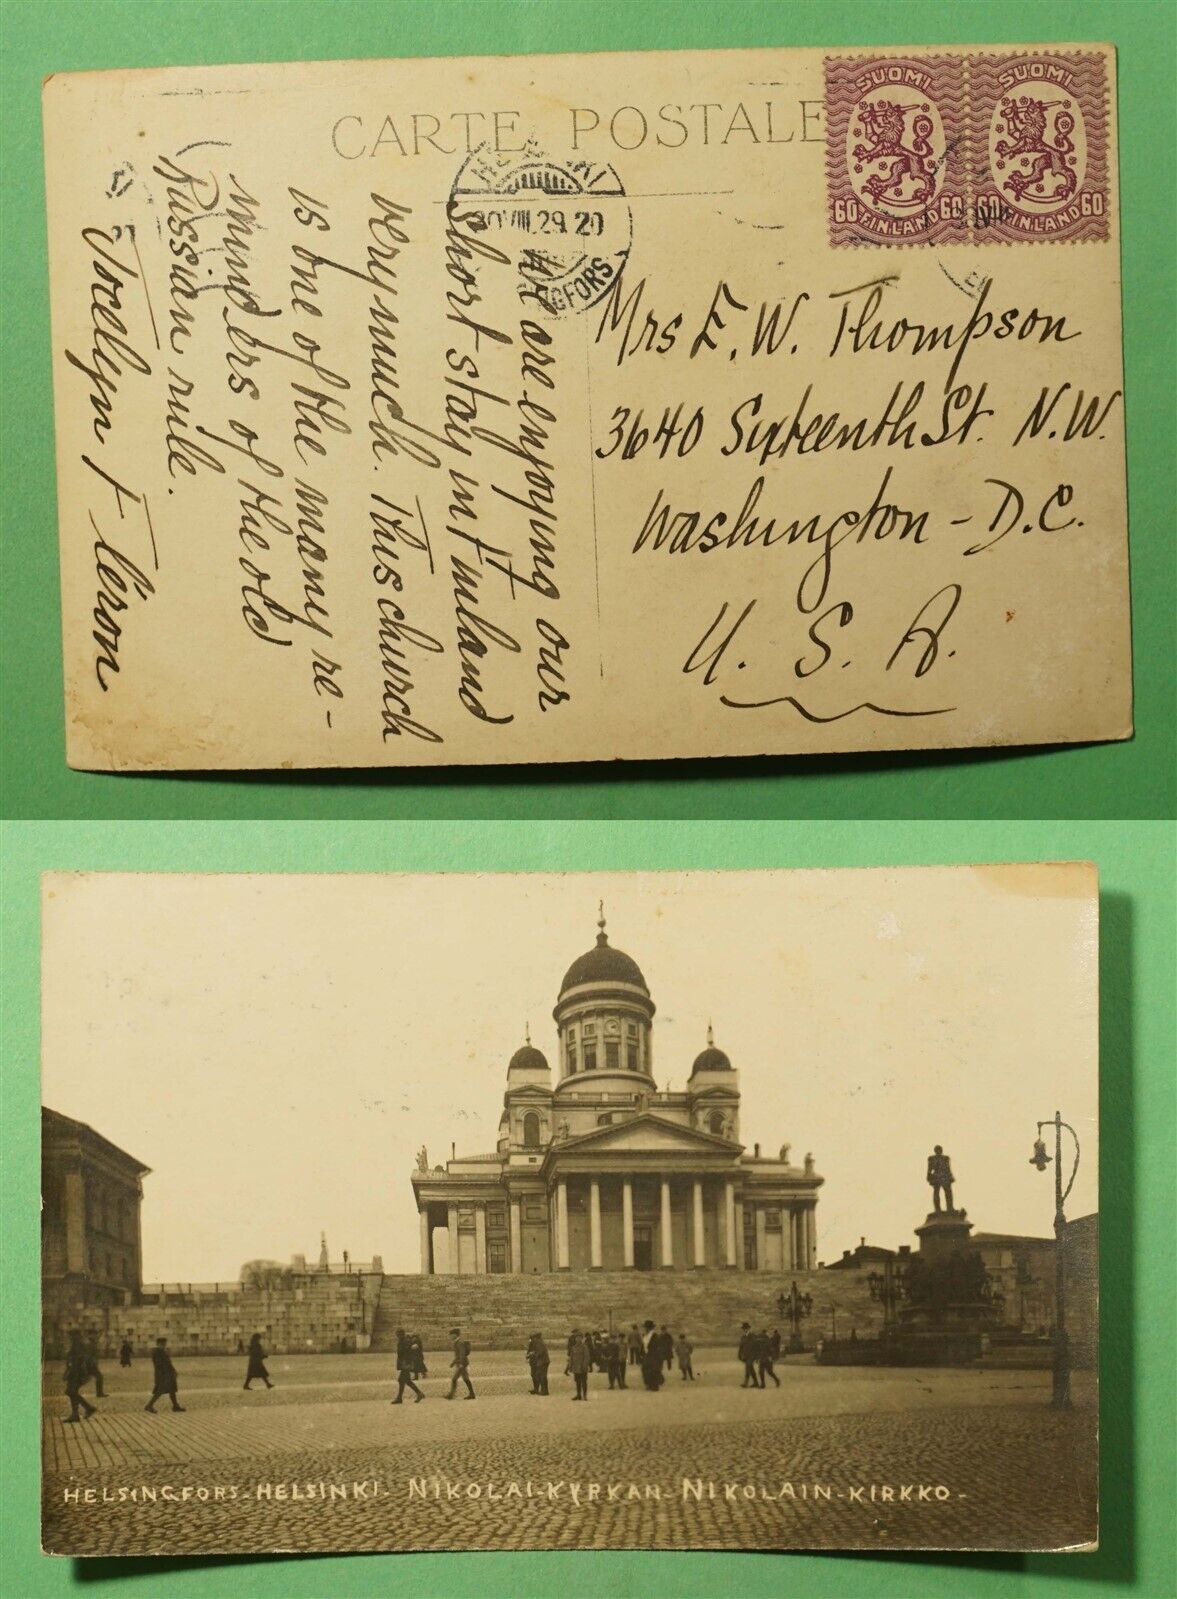 CARTE POSTALE
SUOMI
60 FINLAND 60
SUOMI
60 FINLAND 60
VIII.29.20
We are enjoying our
short stay in Finland
very much. This church
is one of the many re-
minders of the old
Russian rule.
Mrs E. W. Thompson
3640 Sixteenth St. N.W.
Washington - D.C.
U. S. A.
HELSINGFORS - HELSINKI - NIKOLAI-KYRKAN - NIKOLAIN-KIRKKO -